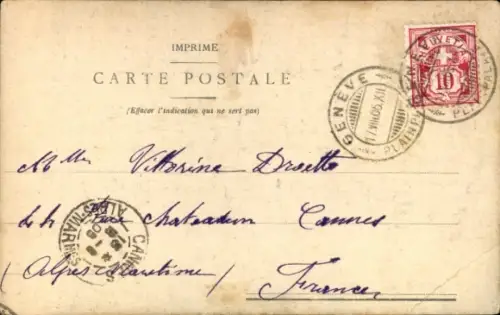 IMPRIME
CARTE POSTALE
(Effacer l'indication qui ne sert pas)
HELVETIA
10
GENÈVE
PLAINP
Mlle Vittorine
Rue Chateaudun Cannes
(Alpes Maritimes)
France
CANNES
ALPES MARIMES